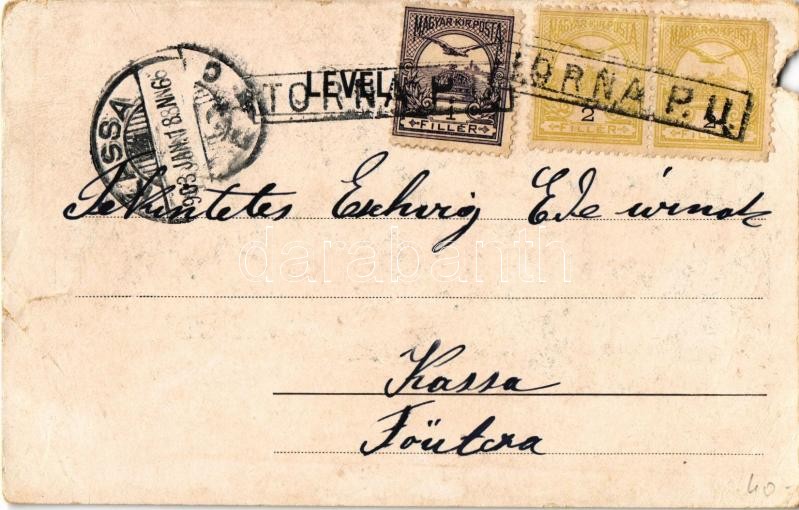 MAGYAR KIR. POSTA
MAGYAR KIR. POSTA
MAGYAR KIR. POSTA
LEVEL
TORNA P.
TORNA P.U.
1
FILLÉR
2
FILLÉR
2
KASSA
903 JAN. 18
Tekintetes Eschwig Ede úrnak
darabanth
Kassa
Főutca
40-